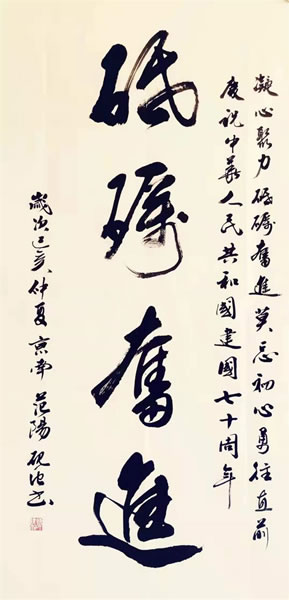 凝心聚力砥礪奮進莫忘初心勇往直前
慶祝中華人民共和國建國七十周年
砥礪奮進
歲次己亥仲夏京南范陽硯书